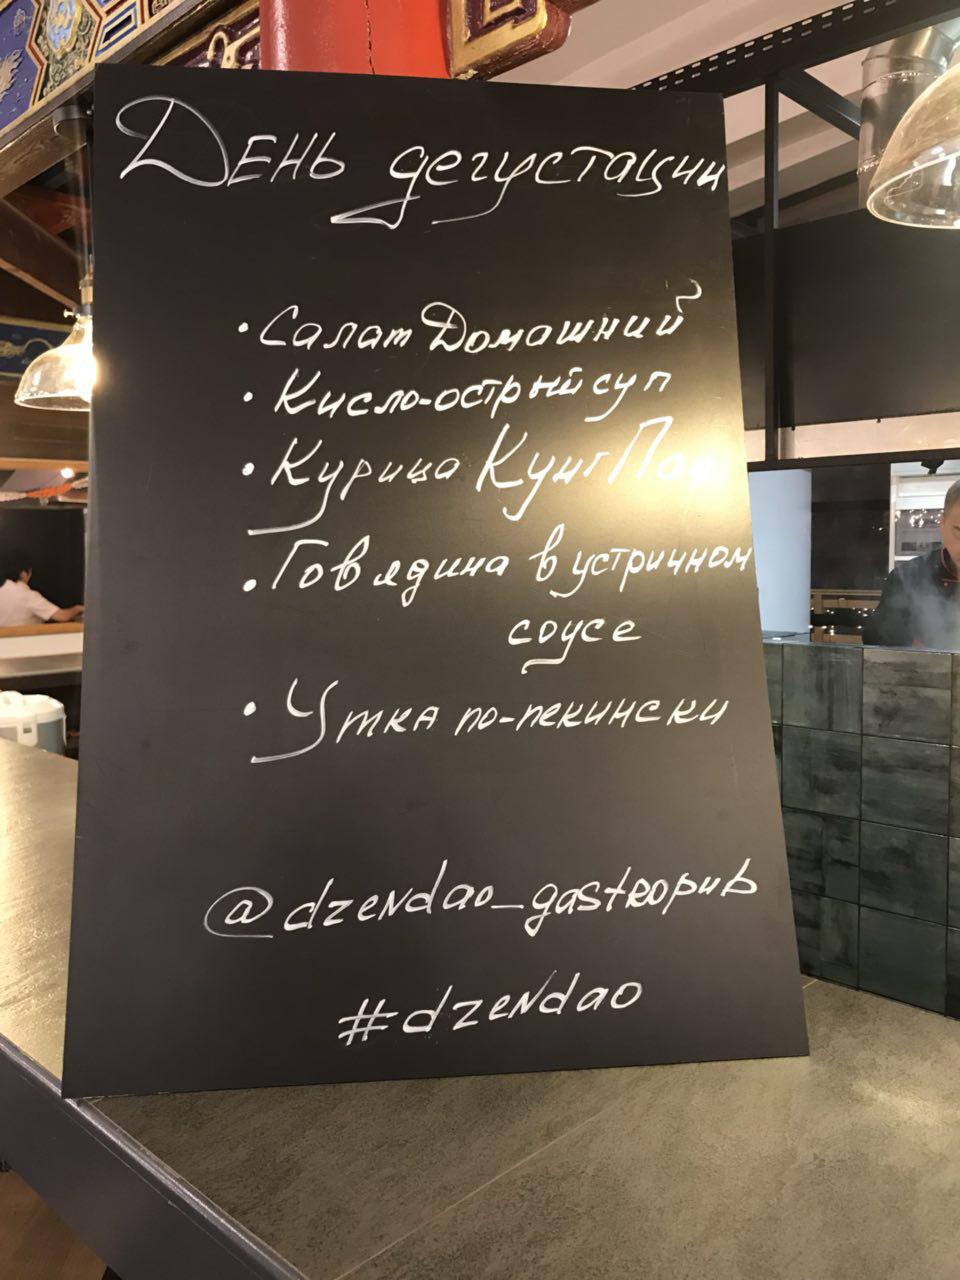 День дегустации
• Салат Домашний
• Кисло-острый суп
• Курица КунгПао
• Говядина в устричном
соусе
• Утка по-пекински
@dzendao_gastropub
#dzendao